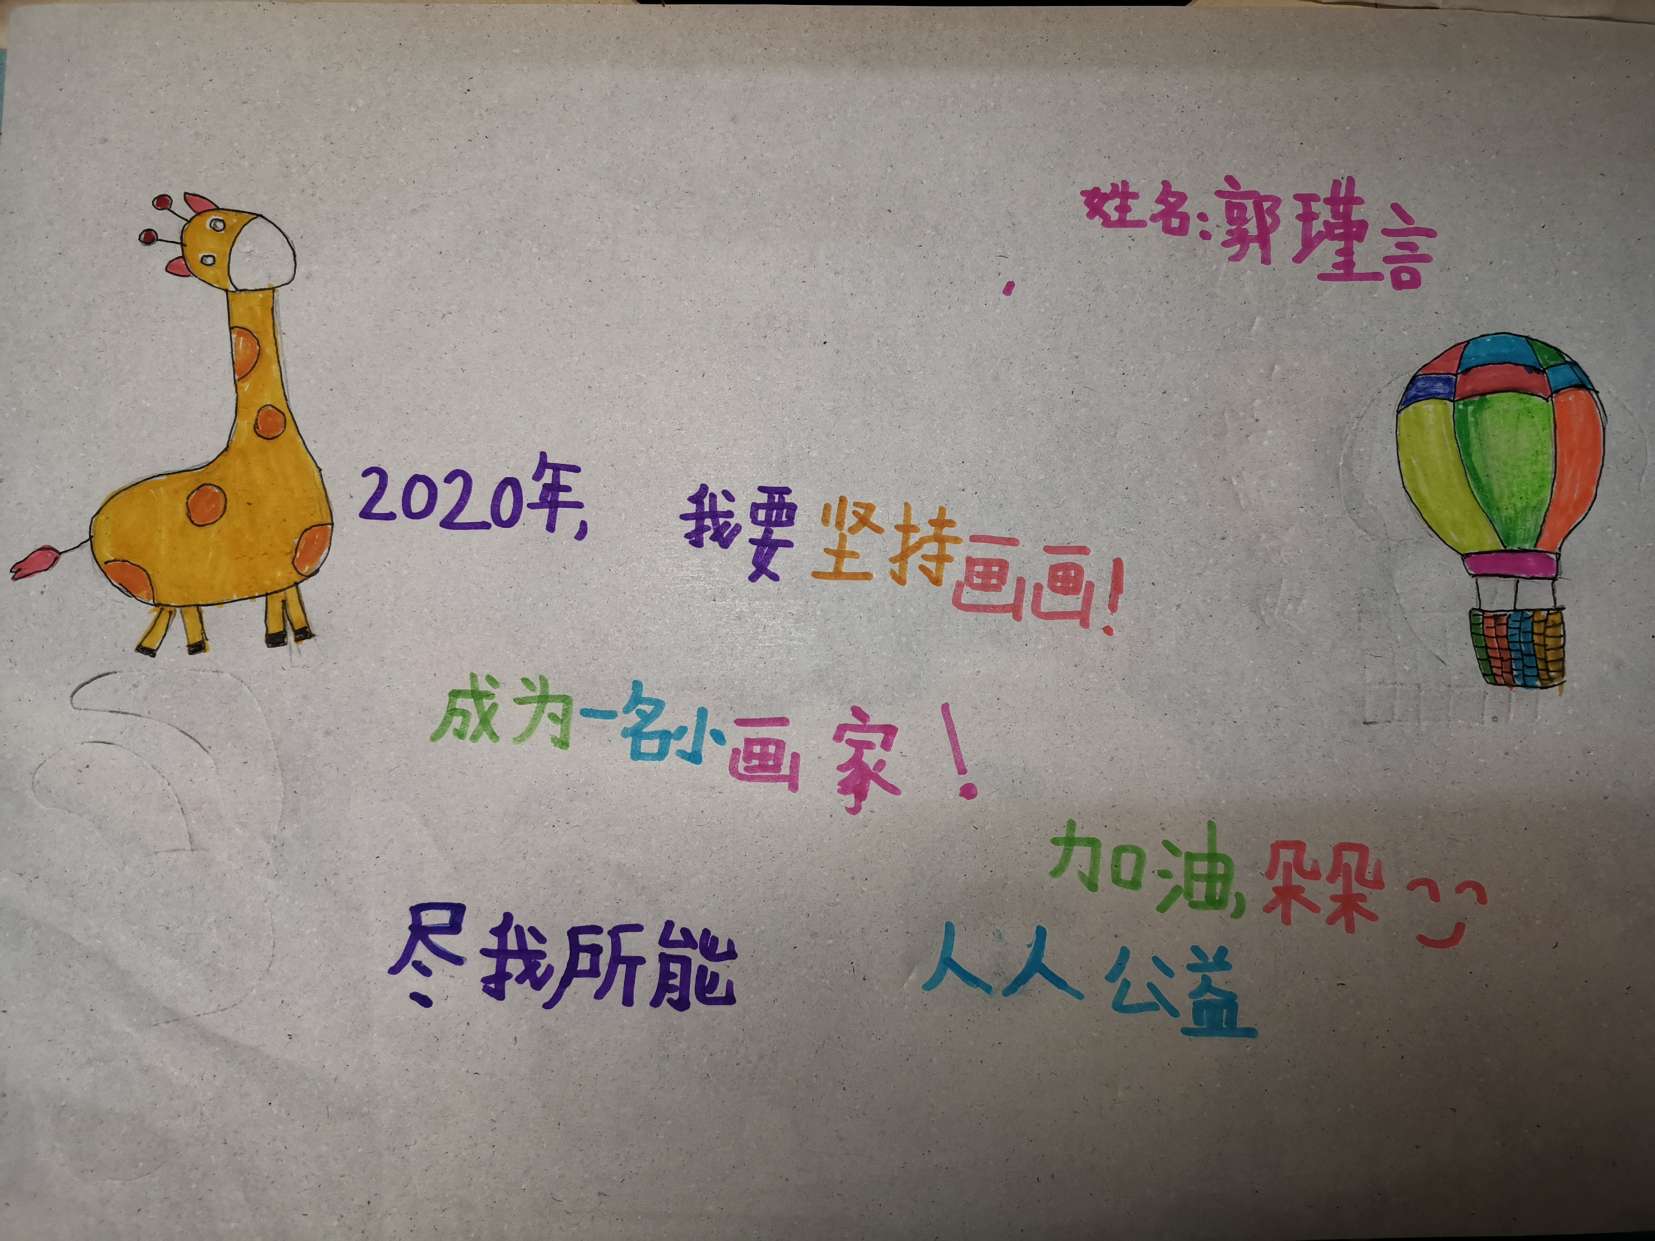 姓名:郭瑾言
2020年, 我要坚持画画!
成为一名小画家!
加油,朵朵
尽我所能 人人公益